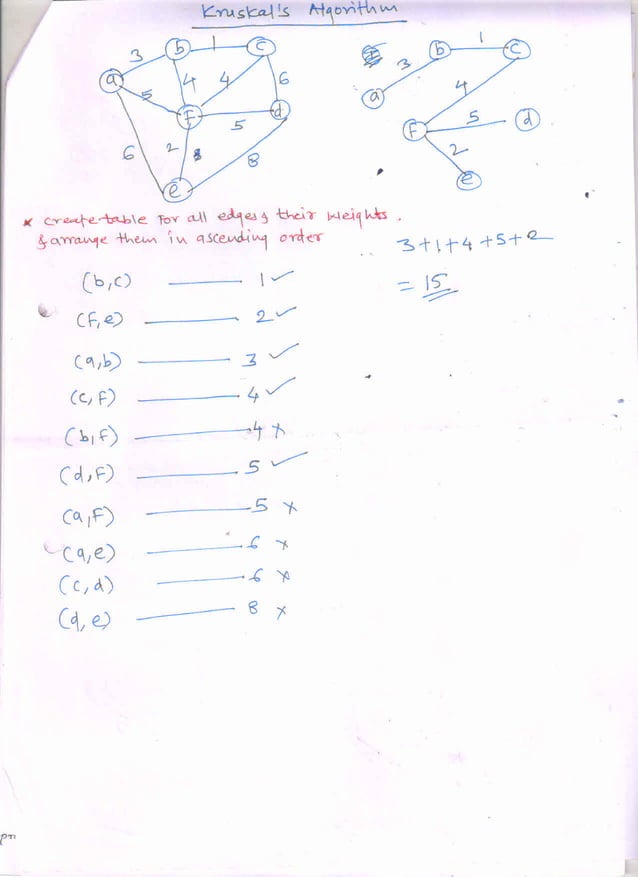 Kruskal's Algorithm
3 b 1 c
a 5 4 4 6
F 5 d
6 2 8
e
b 1 c
3 4
a
F 5 d
2
e
* Create table for all edges & their weights.
& arrange them in ascending order
3+1+4+5+2
= 15
(b,c) —— 1 ✓
(F,e) —— 2 ✓
(a,b) —— 3 ✓
(c,F) —— 4 ✓
(b,F) —— 4 ×
(d,F) —— 5 ✓
(a,F) —— 5 ×
(a,e) —— 6 ×
(c,d) —— 6 ×
(d,e) —— 8 ×